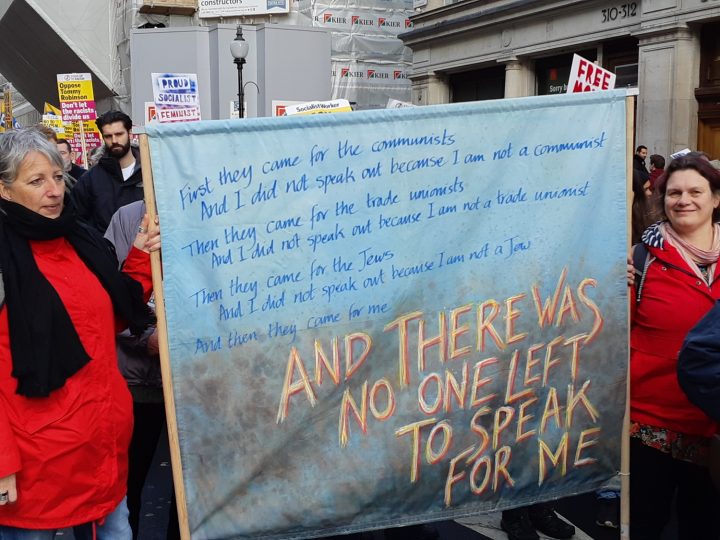 constructors
KIER KIER KIER
KIER KIER
KIER KIER KIER
310-312
Oppose
Tommy
Robinson
Don't let the
racists
divide us
PROUD
SOCIALIST
FEMINIST
Socialist Worker
FREE
Sorry
First they came for the communists
And I did not speak out because I am not a communist
Then they came for the trade unionists
And I did not speak out because I am not a trade unionist
Then they came for the Jews
And I did not speak out because I am not a Jew
And then they came for me
AND THERE WAS
NO ONE LEFT
TO SPEAK
FOR ME